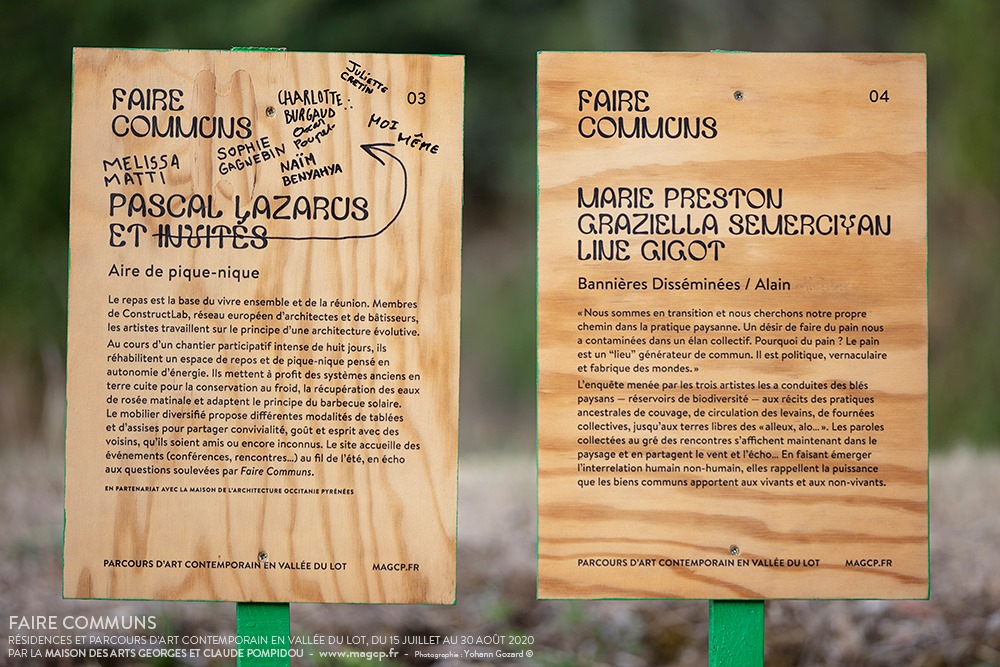 FAIRE
COMMUNS
03
JULIETTE
CRETIN
CHARLOTTE
BURGAUD
MOI
MÊME
SOPHIE
GAGNEBIN
NAÏM
BENYAHYA
MELISSA
MATTI
PASCAL LAZARUS
ET INVITÉS
Aire de pique-nique
Le repas est la base du vivre ensemble et de la réunion. Membres
de ConstructLab, réseau européen d'architectes et de bâtisseurs,
les artistes travaillent sur le principe d'une architecture évolutive.
Au cours d'un chantier participatif intense de huit jours, ils
réhabilitent un espace de repos et de pique-nique pensé en
autonomie d'énergie. Ils mettent à profit des systèmes anciens en
terre cuite pour la conservation au froid, la récupération des eaux
de rosée matinale et adaptent le principe du barbecue solaire.
Le mobilier diversifié propose différentes modalités de tablées
et d'assises pour partager convivialité, goût et esprit avec des
voisins, qu'ils soient amis ou encore inconnus. Le site accueille des
événements (conférences, rencontres...) au fil de l'été, en écho
aux questions soulevées par Faire Communs.
EN PARTENARIAT AVEC LA MAISON DE L'ARCHITECTURE OCCITANIE PYRÉNÉES
PARCOURS D'ART CONTEMPORAIN EN VALLÉE DU LOT MAGCP.FR
FAIRE
COMMUNS
04
MARIE PRESTON
GRAZIELLA SEMERCIYAN
LINE GIGOT
Bannières Disséminées / Alain
« Nous sommes en transition et nous cherchons notre propre
chemin dans la pratique paysanne. Un désir de faire du pain nous
a contaminées dans un élan collectif. Pourquoi du pain ? Le pain
est un "lieu" générateur de commun. Il est politique, vernaculaire
et fabrique des mondes. »
L'enquête menée par les trois artistes les a conduites des blés
paysans – réservoirs de biodiversité – aux récits des pratiques
ancestrales de couvage, de circulation des levains, de fournées
collectives, jusqu'aux terres libres des « alleux, alo... ». Les paroles
collectées au gré des rencontres s'affichent maintenant dans le
paysage et en partagent le vent et l'écho... En faisant émerger
l'interrelation humain non-humain, elles rappellent la puissance
que les biens communs apportent aux vivants et aux non-vivants.
PARCOURS D'ART CONTEMPORAIN EN VALLÉE DU LOT MAGCP.FR
FAIRE COMMUNS
RÉSIDENCES ET PARCOURS D'ART CONTEMPORAIN EN VALLÉE DU LOT, DU 15 JUILLET AU 30 AOÛT 2020
PAR LA MAISON DES ARTS GEORGES ET CLAUDE POMPIDOU - www.magcp.fr - Photographie : Yohann Gozard ©